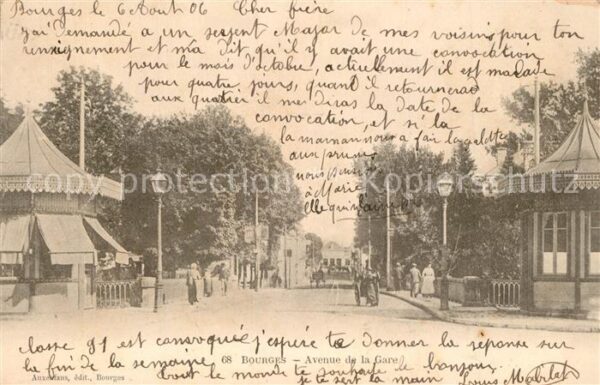 Bourges le 6 Aout 06 Cher frère
j'ai demandé a un sergent Major de mes voisins pour ton
renseignement et ma dit qu'il y avait une convocation
pour le mois d'octobre, actuelement il est malade
pour quatre jours, quand il retournera
aux quartier il me diras la date de la
convocation, et si la
la maman nous a fait la galette
aux prunes
nous
à Marie
elle
classe 91 est convoquée j'espère te donner la réponse sur
68 BOURGES — Avenue de la Gare
la fin de la semaine.
tout le monde te souhaite le bonjour
Auxenfans, édit., Bourges
je te sert la main Louis
copyright-Postkartenschutz